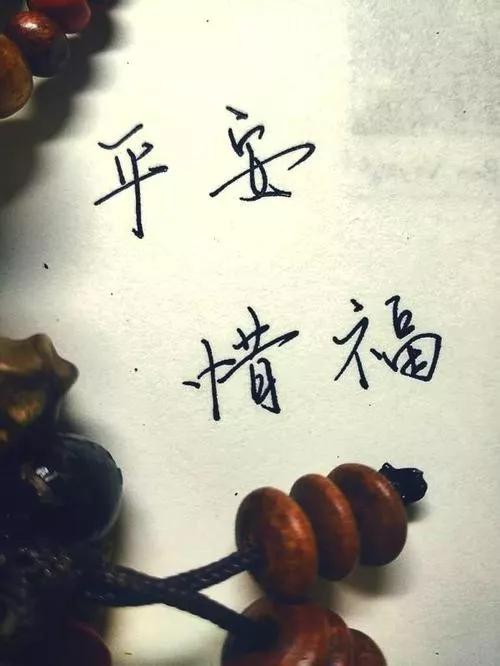 平安
惜福